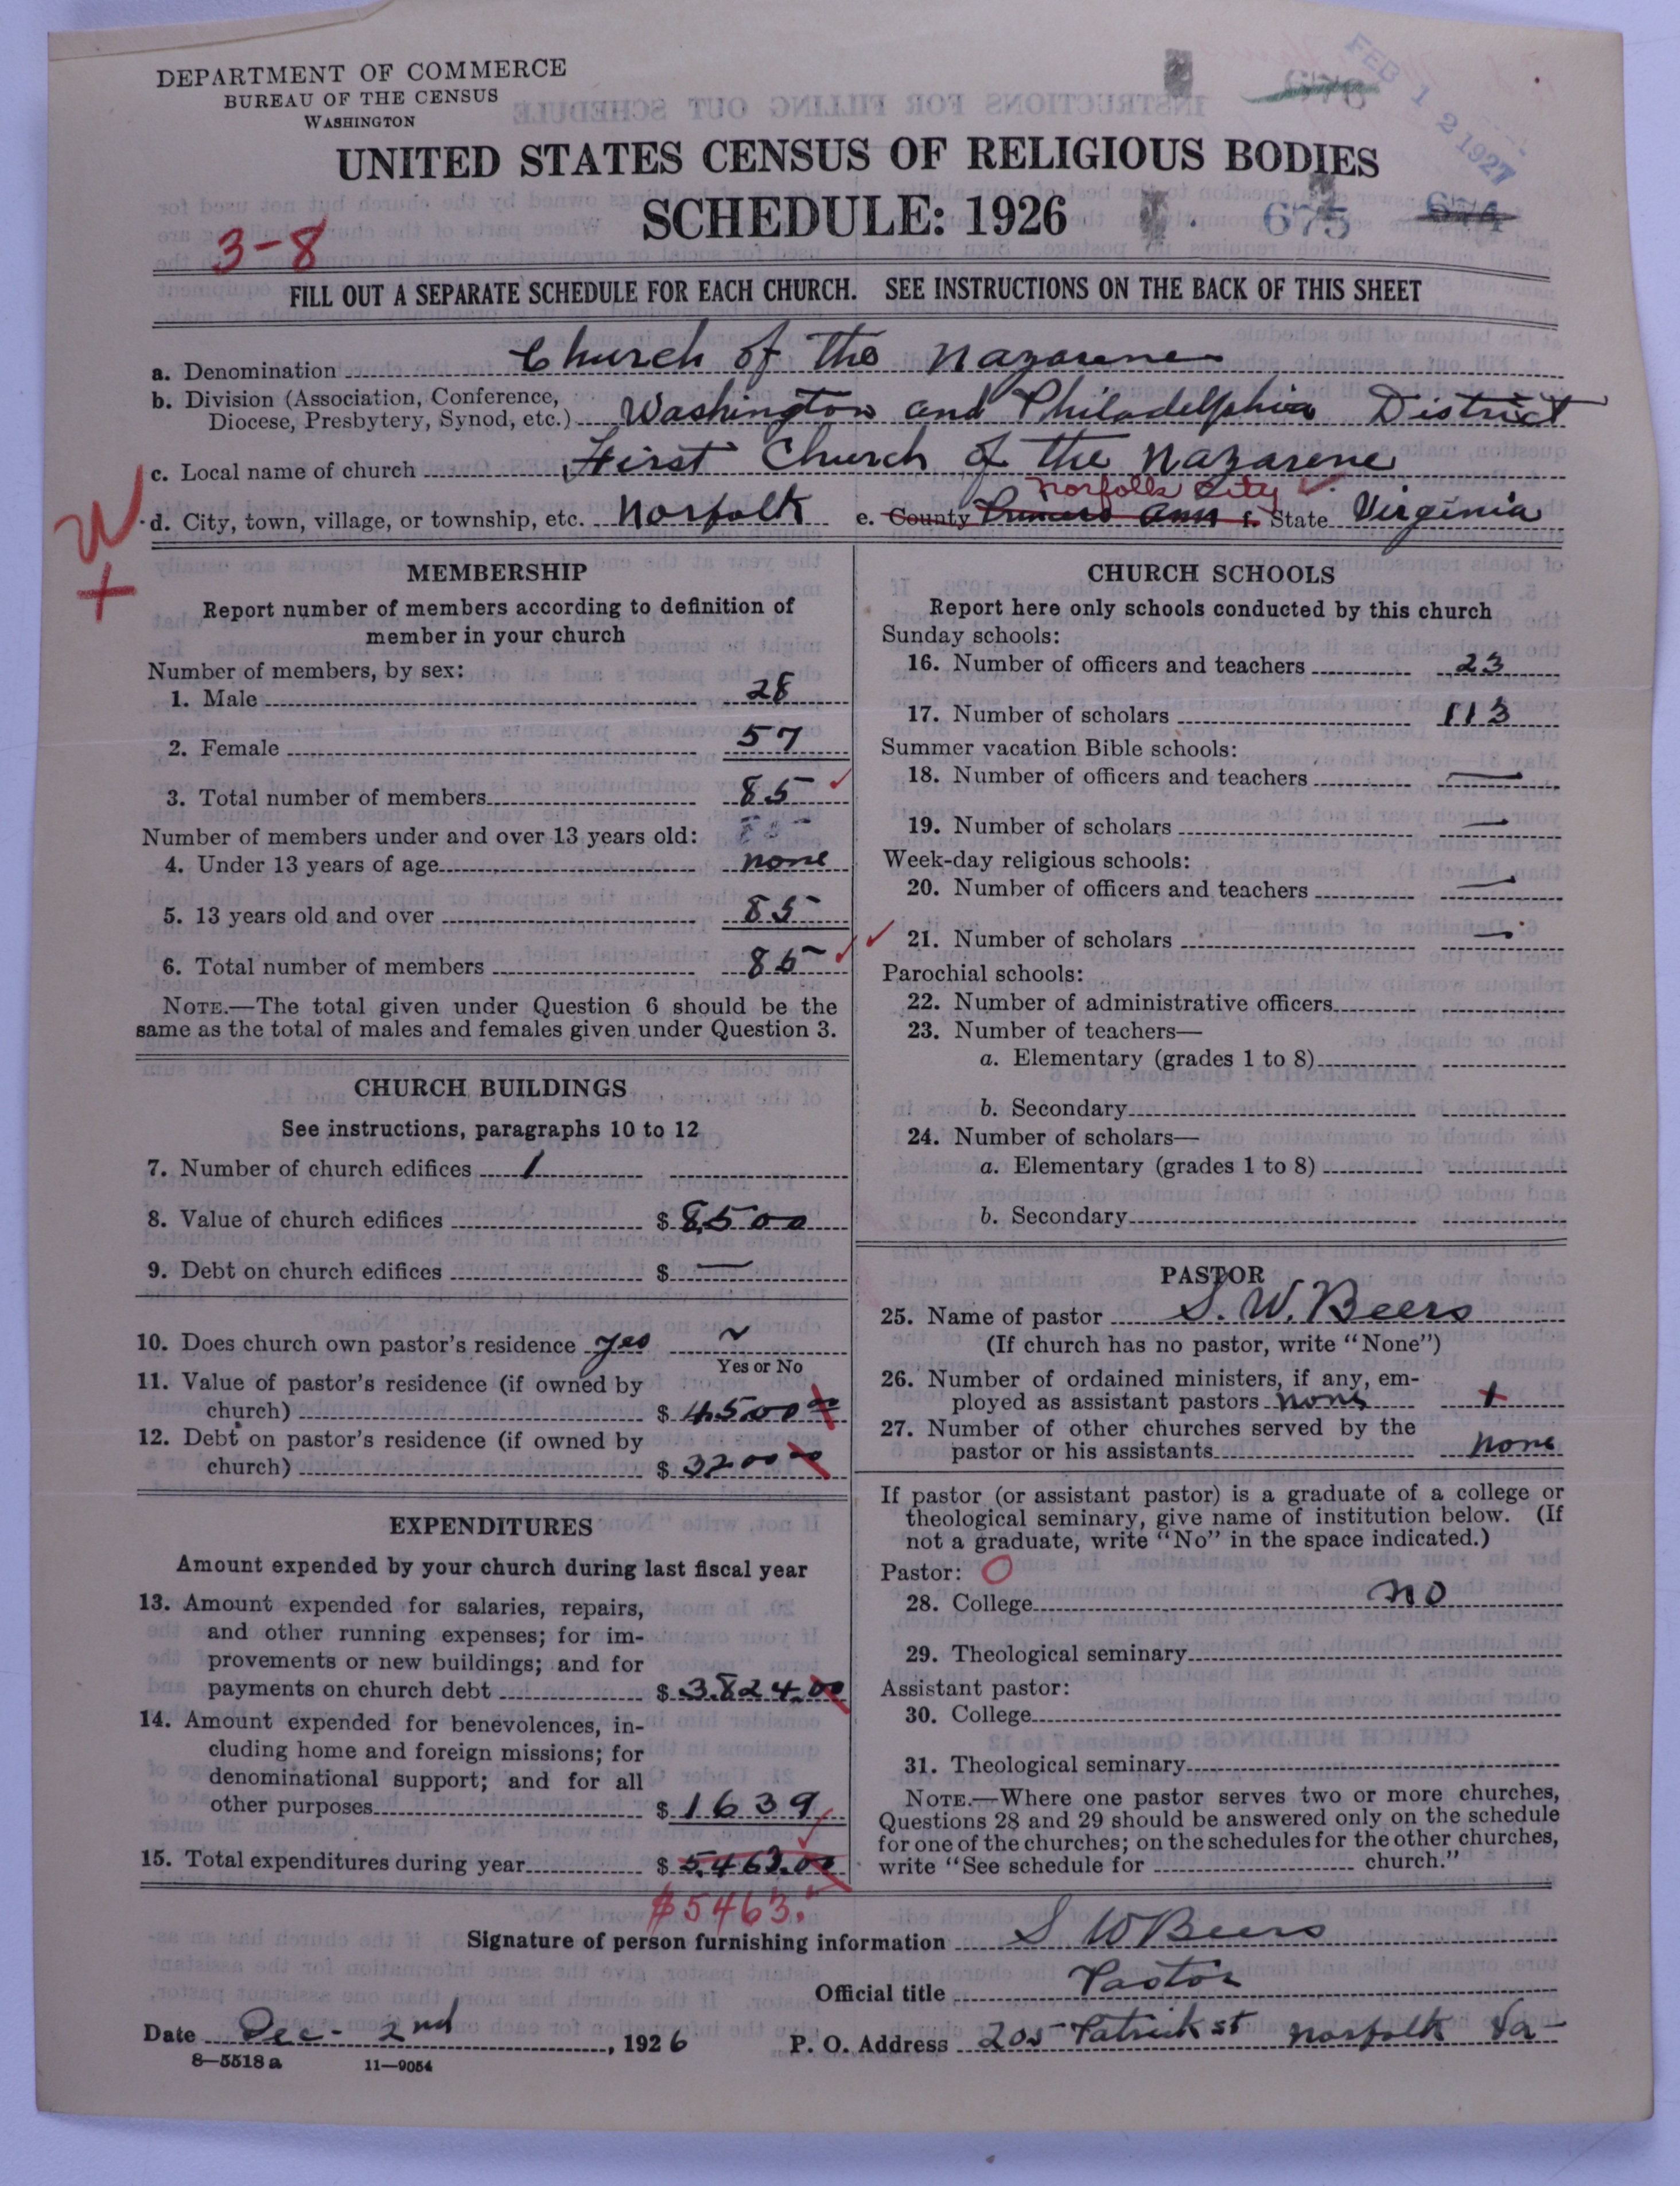 DEPARTMENT OF COMMERCE
BUREAU OF THE CENSUS
WASHINGTON
676
FEB 12 1927
UNITED STATES CENSUS OF RELIGIOUS BODIES
SCHEDULE: 1926
675
674
3-8
FILL OUT A SEPARATE SCHEDULE FOR EACH CHURCH. SEE INSTRUCTIONS ON THE BACK OF THIS SHEET
a. Denomination Church of the Nazarene
b. Division (Association, Conference,
Diocese, Presbytery, Synod, etc.) Washington and Philadelphia District
c. Local name of church First Church of the Nazarene
Norfolk City
d. City, town, village, or township, etc. Norfolk e. County Princess Ann f. State Virginia
W
+
MEMBERSHIP
Report number of members according to definition of
member in your church
Number of members, by sex:
1. Male 28
2. Female 57
3. Total number of members 85
Number of members under and over 13 years old:
4. Under 13 years of age none
5. 13 years old and over 85
6. Total number of members 85
NOTE.—The total given under Question 6 should be the
same as the total of males and females given under Question 3.
CHURCH BUILDINGS
See instructions, paragraphs 10 to 12
7. Number of church edifices 1
8. Value of church edifices $ 8500
9. Debt on church edifices $ —
10. Does church own pastor's residence yes
Yes or No
11. Value of pastor's residence (if owned by
church) $ 4500 00
12. Debt on pastor's residence (if owned by
church) $ 3200 00
EXPENDITURES
Amount expended by your church during last fiscal year
13. Amount expended for salaries, repairs,
and other running expenses; for im-
provements or new buildings; and for
payments on church debt $ 3824.00
14. Amount expended for benevolences, in-
cluding home and foreign missions; for
denominational support; and for all
other purposes $ 1639
15. Total expenditures during year $ 5,463.00
$5463.
CHURCH SCHOOLS
Report here only schools conducted by this church
Sunday schools:
16. Number of officers and teachers 23
17. Number of scholars 113
Summer vacation Bible schools:
18. Number of officers and teachers —
19. Number of scholars —
Week-day religious schools:
20. Number of officers and teachers —
21. Number of scholars —
Parochial schools:
22. Number of administrative officers
23. Number of teachers—
a. Elementary (grades 1 to 8)
b. Secondary
24. Number of scholars—
a. Elementary (grades 1 to 8)
b. Secondary
PASTOR
25. Name of pastor S. W. Beers
(If church has no pastor, write "None")
26. Number of ordained ministers, if any, em-
ployed as assistant pastors none
27. Number of other churches served by the
pastor or his assistants none
If pastor (or assistant pastor) is a graduate of a college or
theological seminary, give name of institution below. (If
not a graduate, write "No" in the space indicated.)
Pastor: O
28. College no
29. Theological seminary
Assistant pastor:
30. College
31. Theological seminary
NOTE.—Where one pastor serves two or more churches,
Questions 28 and 29 should be answered only on the schedule
for one of the churches; on the schedules for the other churches,
write "See schedule for church."
Signature of person furnishing information S W Beers
Official title Pastor
Date Dec- 2nd, 1926 P. O. Address 205 Patrick st Norfolk Va
8-5518a 11-9054